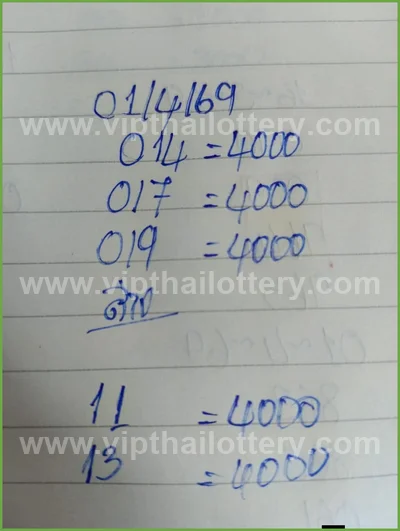 01/4/69
www.vipthailottery.com
014 = 4000
017 = 4000
019 = 4000
www.vipthailottery.com
ล่าง
11 = 4000
www.vipthailottery.com
13 = 4000